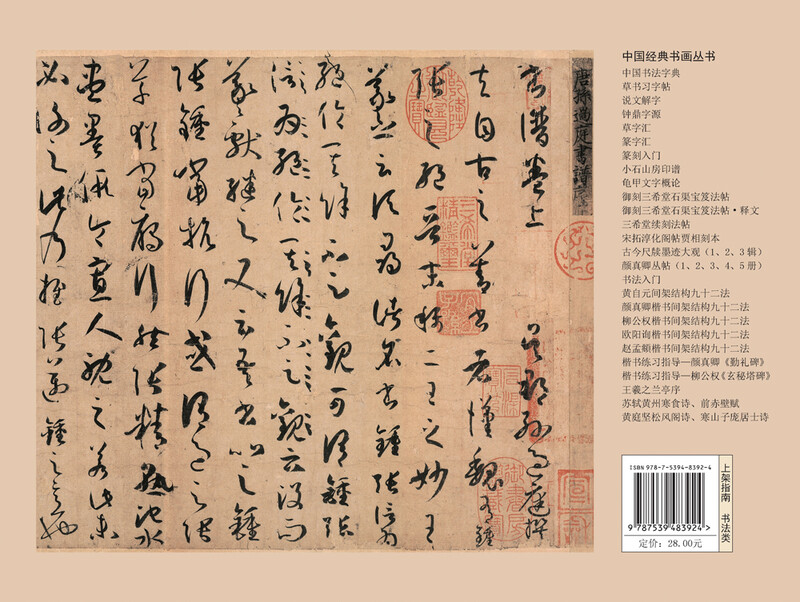 唐孫過庭書譜序
書譜卷上 吳郡孫過庭撰
夫自古之善書者漢魏有鍾
張之絕晉末稱二王之妙王
羲之云頃尋諸名書鍾張信為
絕倫其餘不足觀可謂鍾張
為絕倫其餘不足觀云沒而
羲獻繼之又云吾書比之鍾
張鍾當抗行或謂過之張
草猶當鴈行然張精熟池水
盡墨假令寡人耽之若此未
必謝之此乃推張邁鍾之意也
中国经典书画丛书
中国书法字典
草书习字帖
说文解字
钟鼎字源
草字汇
篆字汇
篆刻入门
小石山房印谱
龟甲文字概论
御刻三希堂石渠宝笈法帖
御刻三希堂石渠宝笈法帖·释文
三希堂续刻法帖
宋拓淳化阁帖贾相刻本
古今尺牍墨迹大观（1、2、3辑）
颜真卿丛帖（1、2、3、4、5册）
书法入门
黄自元间架结构九十二法
颜真卿楷书间架结构九十二法
柳公权楷书间架结构九十二法
欧阳询楷书间架结构九十二法
赵孟頫楷书间架结构九十二法
楷书练习指导—颜真卿《勤礼碑》
楷书练习指导—柳公权《玄秘塔碑》
王羲之兰亭序
苏轼黄州寒食诗、前赤壁赋
黄庭坚松风阁诗、寒山子庞居士诗
ISBN 978-7-5394-8392-4
9 787539 483924 >
定价：28.00元
上架指南 书法类